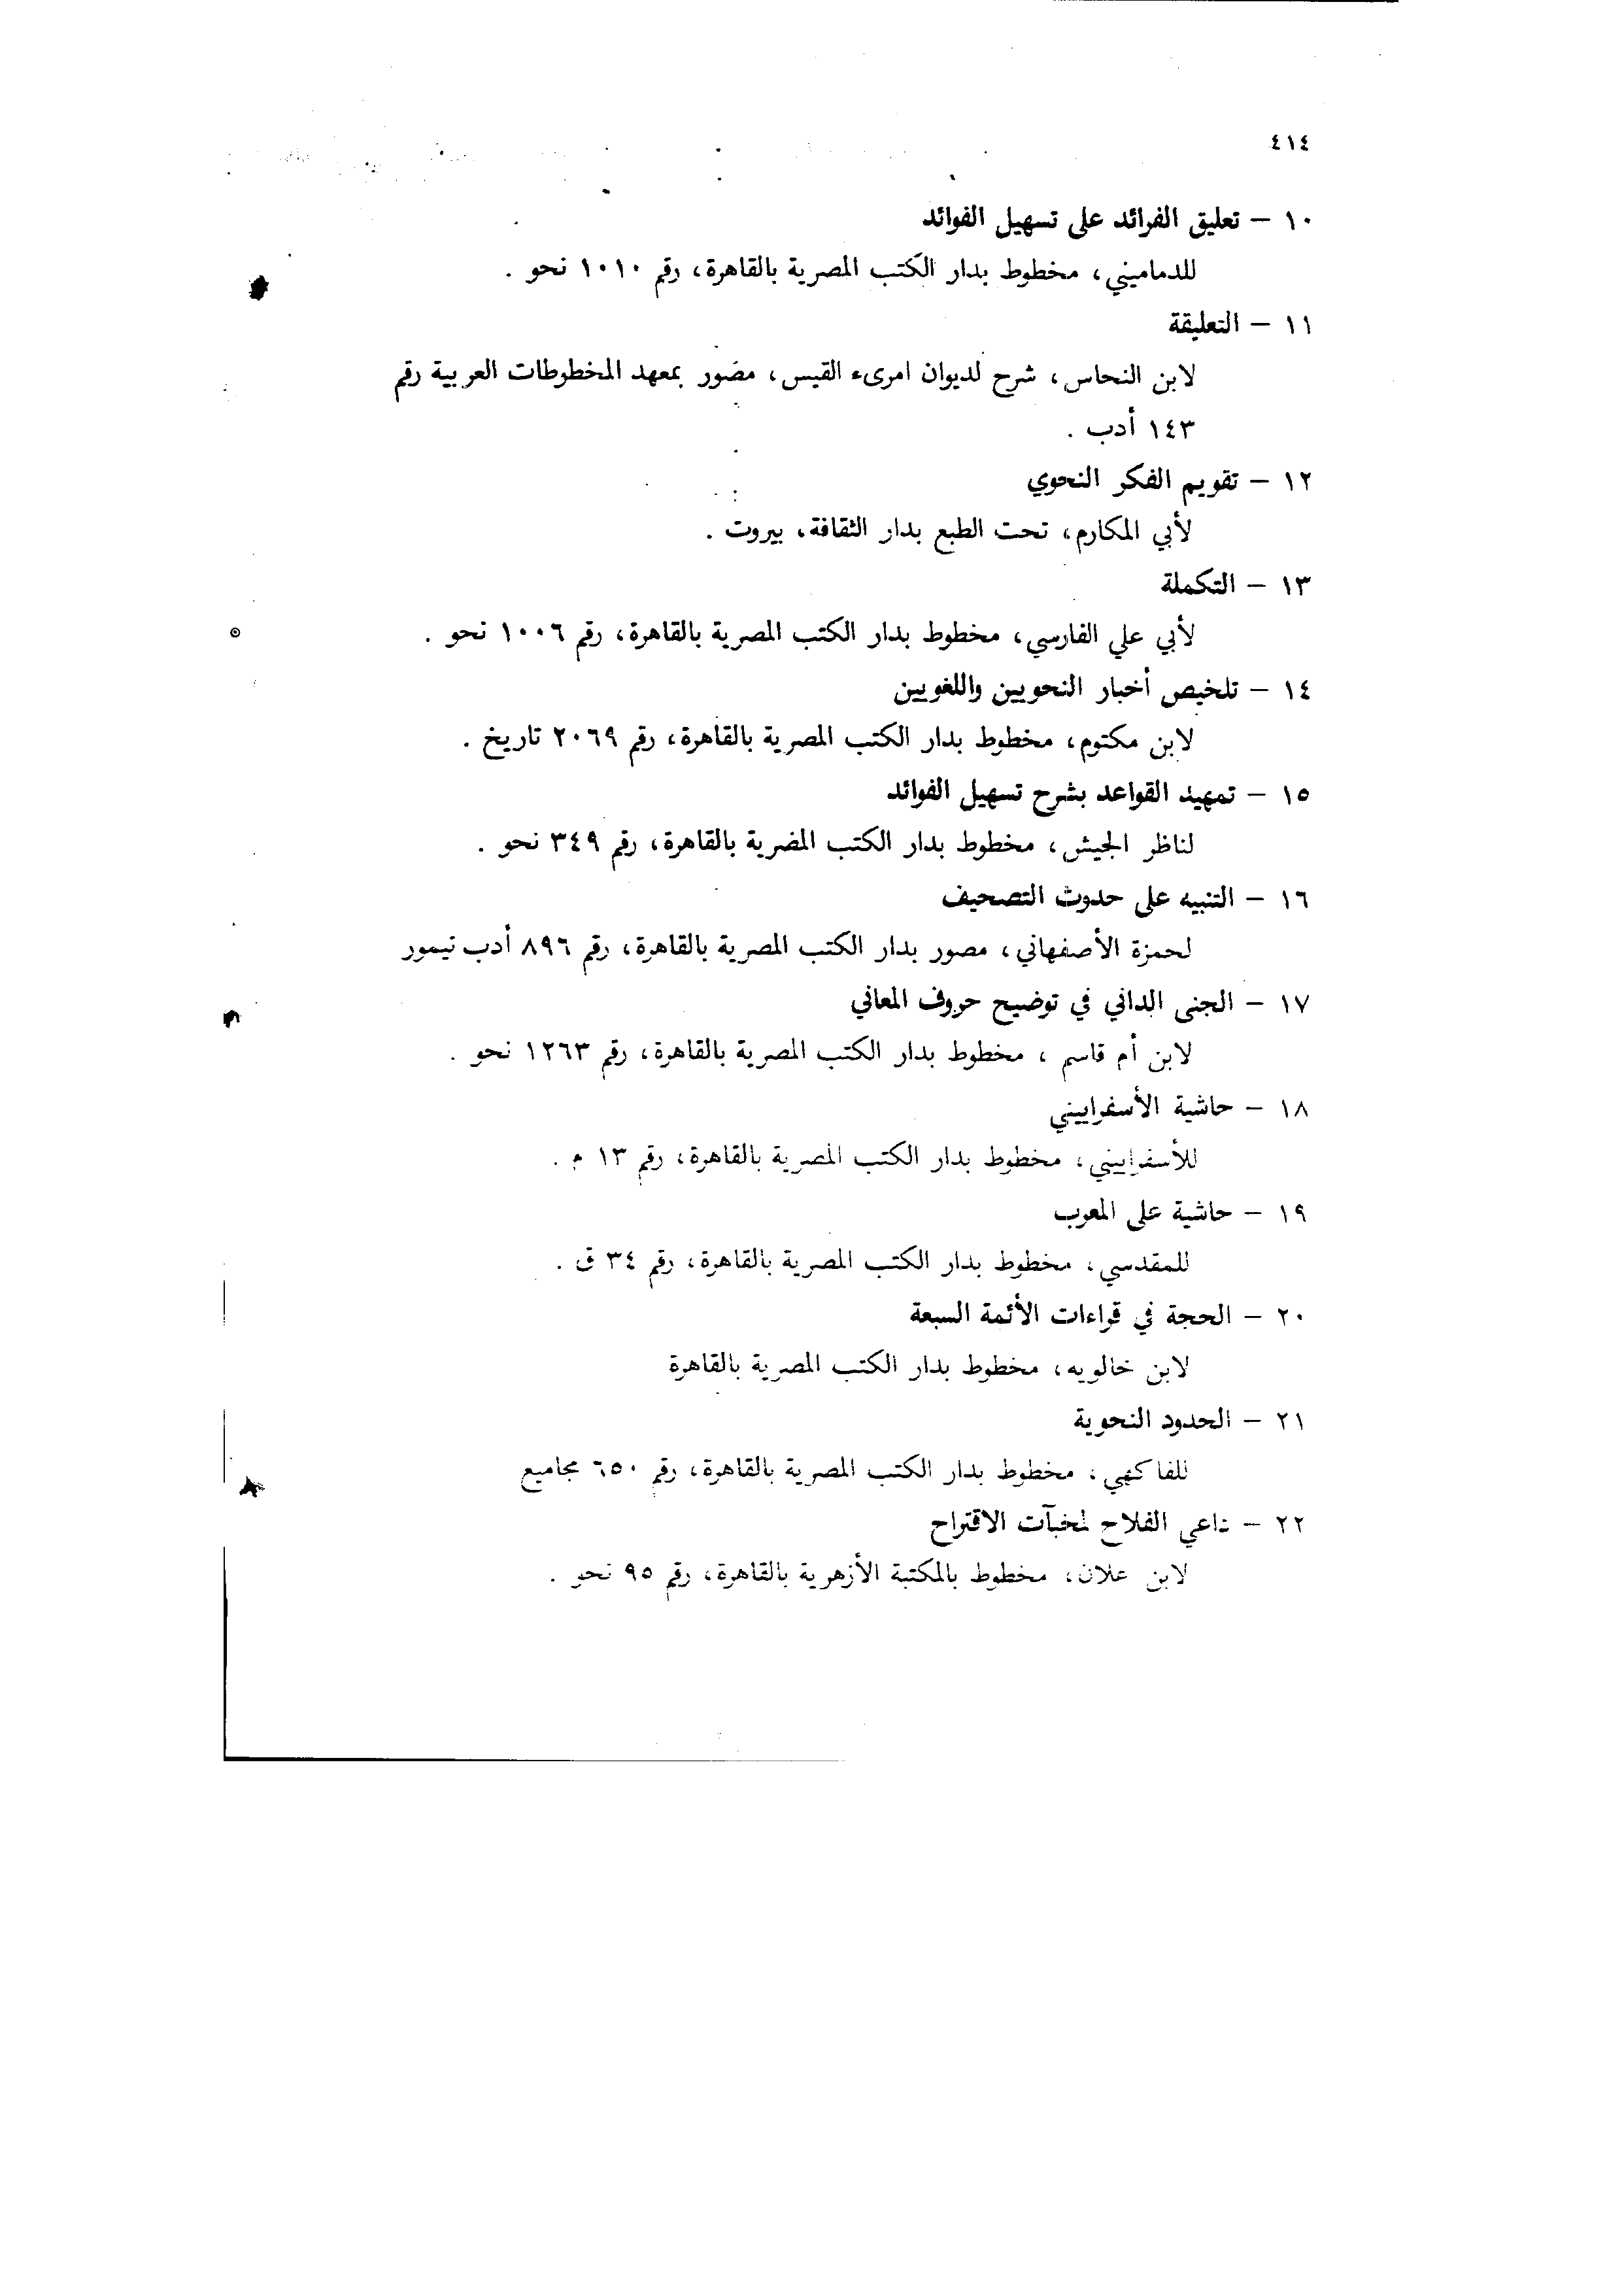 ٤١٤
١٠ – تعليق الفرائد على تسهيل الفوائد
للدماميني، مخطوط بدار الكتب المصرية بالقاهرة، رقم ١٠١٠ نحو .
١١ – التعليقة
لابن النحاس، شرح لديوان امرىء القيس، مصور بمعهد المخطوطات العربية رقم
١٤٣ أدب .
١٢ – تقويم الفكر النحوي
لأبي المكارم، تحت الطبع بدار الثقافة، بيروت .
١٣ – التكملة
لأبي علي الفارسي، مخطوط بدار الكتب المصرية بالقاهرة، رقم ١٠٠٦ نحو .
١٤ – تلخيص أخبار النحويين واللغويين
لابن مكتوم، مخطوط بدار الكتب المصرية بالقاهرة، رقم ٢٠٦٩ تاريخ .
١٥ – تمهيد القواعد بشرح تسهيل الفوائد
لناظر الجيش، مخطوط بدار الكتب المصرية بالقاهرة، رقم ٣٤٩ نحو .
١٦ – التنبيه على حدوث التصحيف
لحمزة الأصفهاني، مصور بدار الكتب المصرية بالقاهرة، رقم ٨٩٦ أدب تيمور
١٧ – الجنى الداني في توضيح حروف المعاني
لابن أم قاسم ، مخطوط بدار الكتب المصرية بالقاهرة، رقم ١٢٦٣ نحو .
١٨ – حاشية الأسفراييني
للأسفراييني، مخطوط بدار الكتب المصرية بالقاهرة، رقم ١٣ م .
١٩ – حاشية على المعرب
للمقدسي، مخطوط بدار الكتب المصرية بالقاهرة، رقم ٣٤ ق .
٢٠ – الحجة في قراءات الأئمة السبعة
لابن خالويه، مخطوط بدار الكتب المصرية بالقاهرة
٢١ – الحدود النحوية
للفاكهي، مخطوط بدار الكتب المصرية بالقاهرة، رقم ٦٥٠ مجاميع
٢٢ – داعي الفلاح لمخبآت الاقتراح
لابن علان، مخطوط بالمكتبة الأزهرية بالقاهرة، رقم ٩٥ نحو .